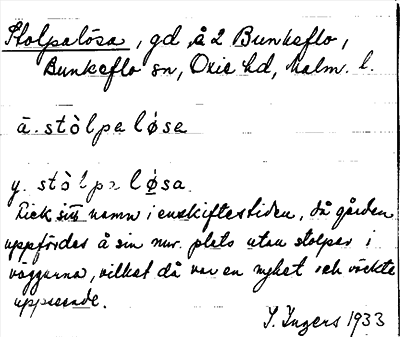 Stolpalösa, gd å 2 Bunkeflo,
Bunkeflo sn, Oxie hd, Malm. l.
ä. stòlpa løsa
y. stòlpa løsa
Fick sitt namn i enskiftestiden, då gården
uppfördes å sin nuv. plats utan stolpar i
väggarna, vilket då var en nyhet och väckte
uppseende.
I. Ingers 1933